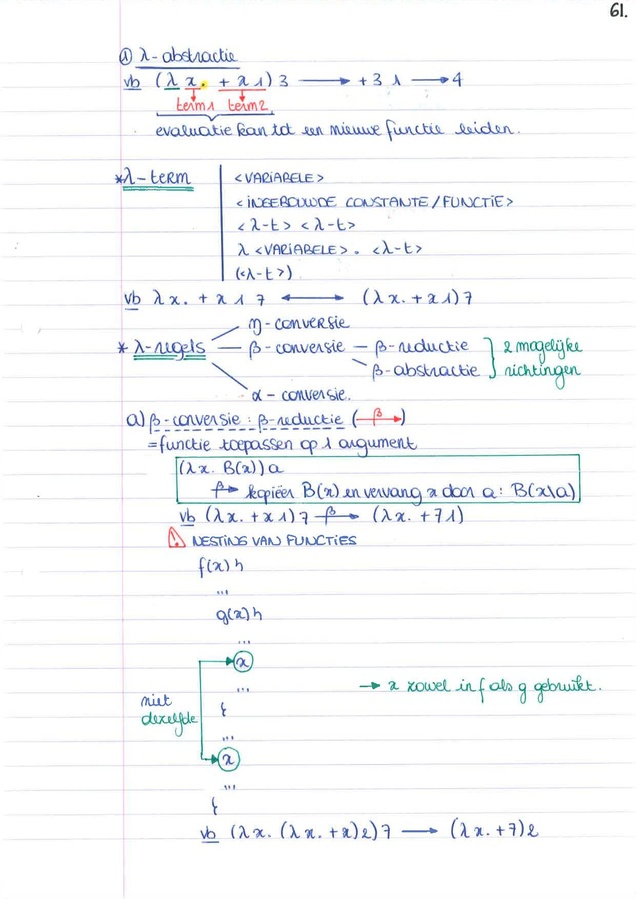 61.
① λ-abstractie
vb (λ x. + x 1) 3 → + 3 1 → 4
term1 term2
evaluatie kan tot een nieuwe functie leiden.
*λ-term
<VARIABELE>
<INGEBOUWDE CONSTANTE/FUNCTIE>
<λ-t> <λ-t>
λ <VARIABELE> . <λ-t>
(<λ-t>)
vb λx. + x 1 7 ⟷ (λx. + x 1) 7
η-conversie
* λ-regels — β-conversie — β-reductie
β-abstractie
2 mogelijke
richtingen
α-conversie.
a) β-conversie : β-reductie (β→)
= functie toepassen op 1 argument
(λx. B(x)) a
β→ kopiëer B(x) en vervang x door a : B(x\a)
vb (λx. + x 1) 7 β→ (λx. + 7 1)
⚠ NESTING VAN FUNCTIES
f(x) {
...
g(x) {
...
x
...
→ x zowel in f als g gebruikt.
niet
dezelfde
}
...
x
...
}
vb (λx. (λx. + x) 2) 7 → (λx. + 7) 2